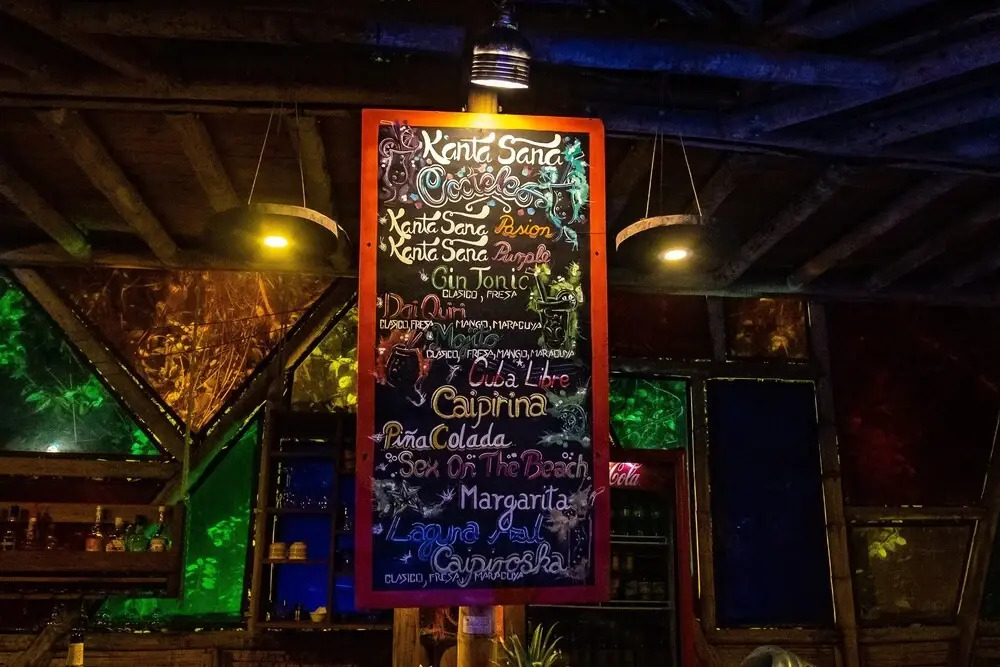 Kanta Sana
Cocteles
Kanta Sana Pasion
Kanta Sana Purple
Gin Tonic
CLASICO, FRESA
Dai Quiri
CLASICO, FRESA, MANGO, MARACUYA
Mojito
CLASICO, FRESA, MANGO, MARACUYA
Cuba Libre
Caipirina
Piña Colada
Sex On The Beach
Margarita
Laguna Azul
Caipiroska
CLASICO, FRESA, MARACUYA
Cola